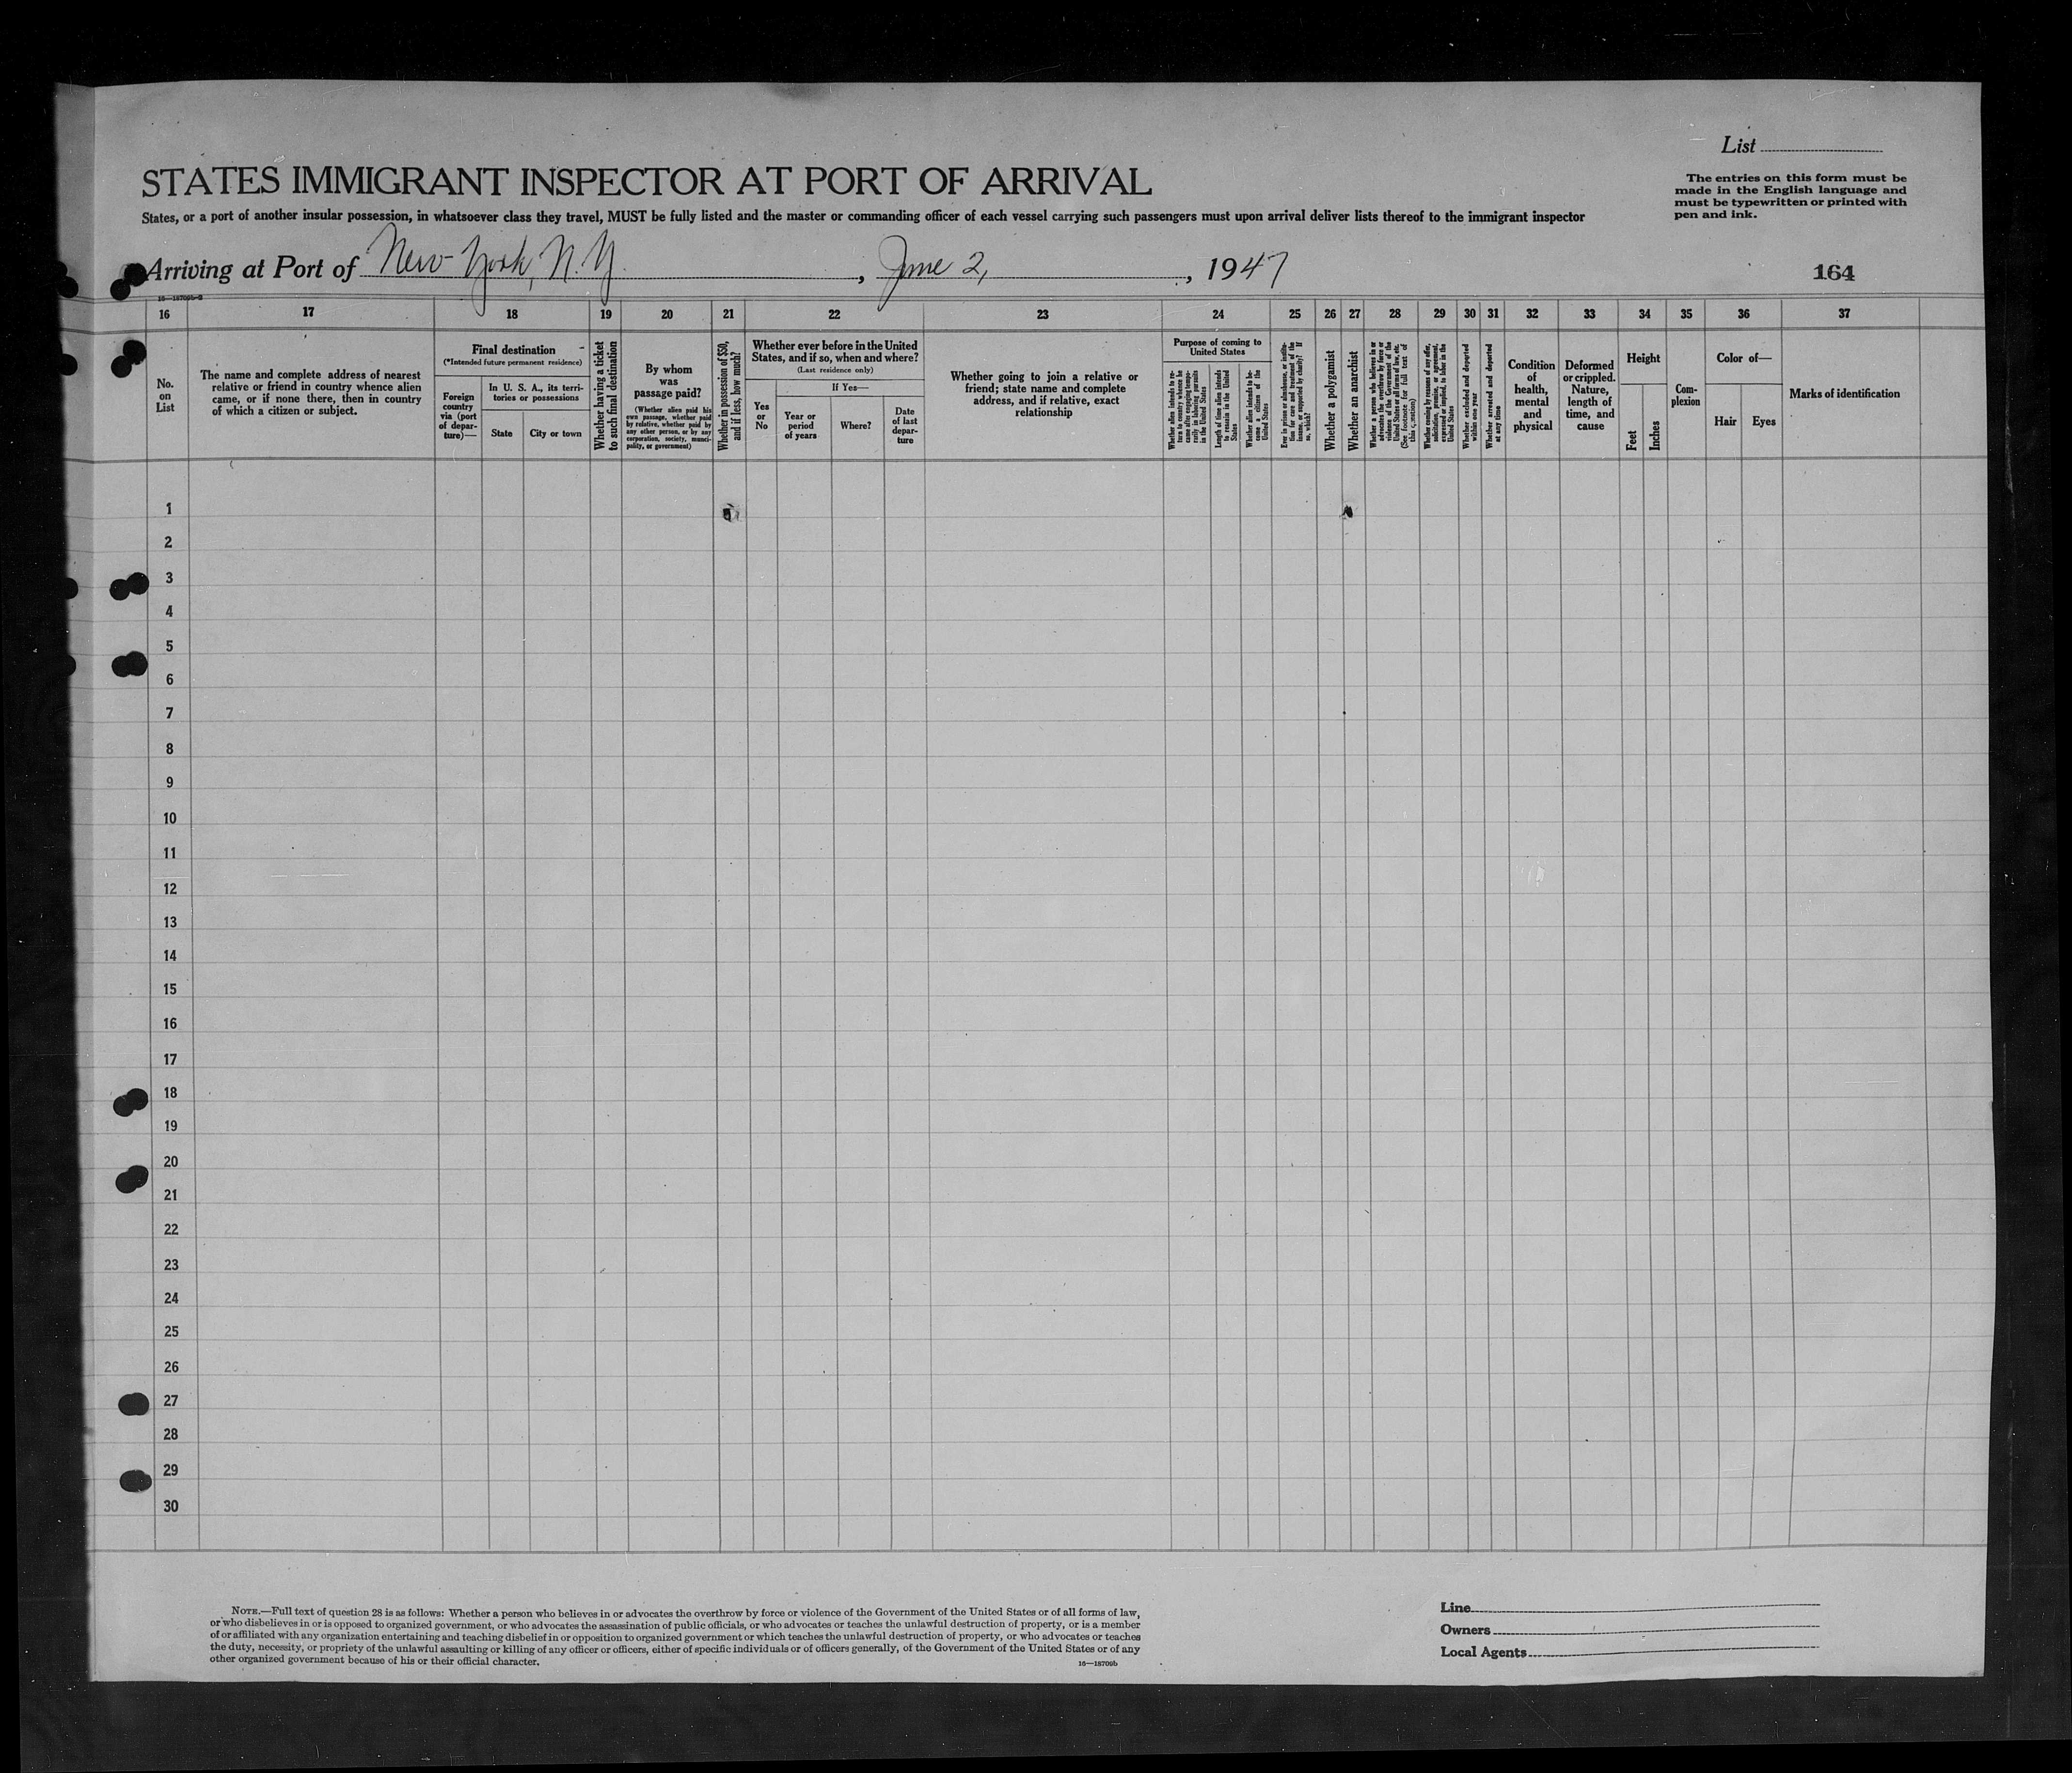 List
STATES IMMIGRANT INSPECTOR AT PORT OF ARRIVAL
The entries on this form must be
made in the English language and
must be typewritten or printed with
pen and ink.
States, or a port of another insular possession, in whatsoever class they travel, MUST be fully listed and the master or commanding officer of each vessel carrying such passengers must upon arrival deliver lists thereof to the immigrant inspector
Arriving at Port of New York, N.Y. , June 2, , 1947
164
16 17 18 19 20 21 22 23 24 25 26 27 28 29 30 31 32 33 34 35 36 37
No.
on
List
The name and complete address of nearest
relative or friend in country whence alien
came, or if none there, then in country
of which a citizen or subject.
Final destination
(*Intended future permanent residence)
Foreign
country
via (port
of depar-
ture)—
In U. S. A., its terri-
tories or possessions
State
City or town
Whether having a ticket
to such final destination
By whom
was
passage paid?
(Whether alien paid his
own passage, whether paid
by relative, whether paid by
any other person, or by any
corporation, society, munici-
pality, or government)
Whether in possession of $50,
and if less, how much?
Whether ever before in the United
States, and if so, when and where?
(Last residence only)
Yes
or
No
If Yes—
Year or
period
of years
Where?
Date
of last
depar-
ture
Whether going to join a relative or
friend; state name and complete
address, and if relative, exact
relationship
Purpose of coming to
United States
Whether alien intends to re-
turn to country whence he
came after engaging tempo-
rarily in laboring pursuits
in the United States
Length of time alien intends
to remain in the United
States
Whether alien intends to be-
come a citizen of the
United States
Ever in prison or almshouse, or institu-
tion for care and treatment of the
insane, or supported by charity? If
so, which?
Whether a polygamist
Whether an anarchist
Whether a person who believes in or
advocates the overthrow by force or
violence of the Government of the
United States or all forms of law, etc.
(See footnote for full text of
this question)
Whether coming by reasons of any offer,
solicitation, promise, or agreement,
expressed or implied, to labor in the
United States
Whether excluded and deported
within one year
Whether arrested and deported
at any time
Condition
of
health,
mental
and
physical
Deformed
or crippled.
Nature,
length of
time, and
cause
Height
Feet
Inches
Com-
plexion
Color of—
Hair
Eyes
Marks of identification
1
2
3
4
5
6
7
8
9
10
11
12
13
14
15
16
17
18
19
20
21
22
23
24
25
26
27
28
29
30
NOTE.—Full text of question 28 is as follows: Whether a person who believes in or advocates the overthrow by force or violence of the Government of the United States or of all forms of law,
or who disbelieves in or is opposed to organized government, or who advocates the assassination of public officials, or who advocates or teaches the unlawful destruction of property, or is a member
of or affiliated with any organization entertaining and teaching disbelief in or opposition to organized government or which teaches the unlawful destruction of property, or who advocates or teaches
the duty, necessity, or propriety of the unlawful assaulting or killing of any officer or officers, either of specific individuals or of officers generally, of the Government of the United States or of any
other organized government because of his or their official character.
16—18709b
Line
Owners
Local Agents